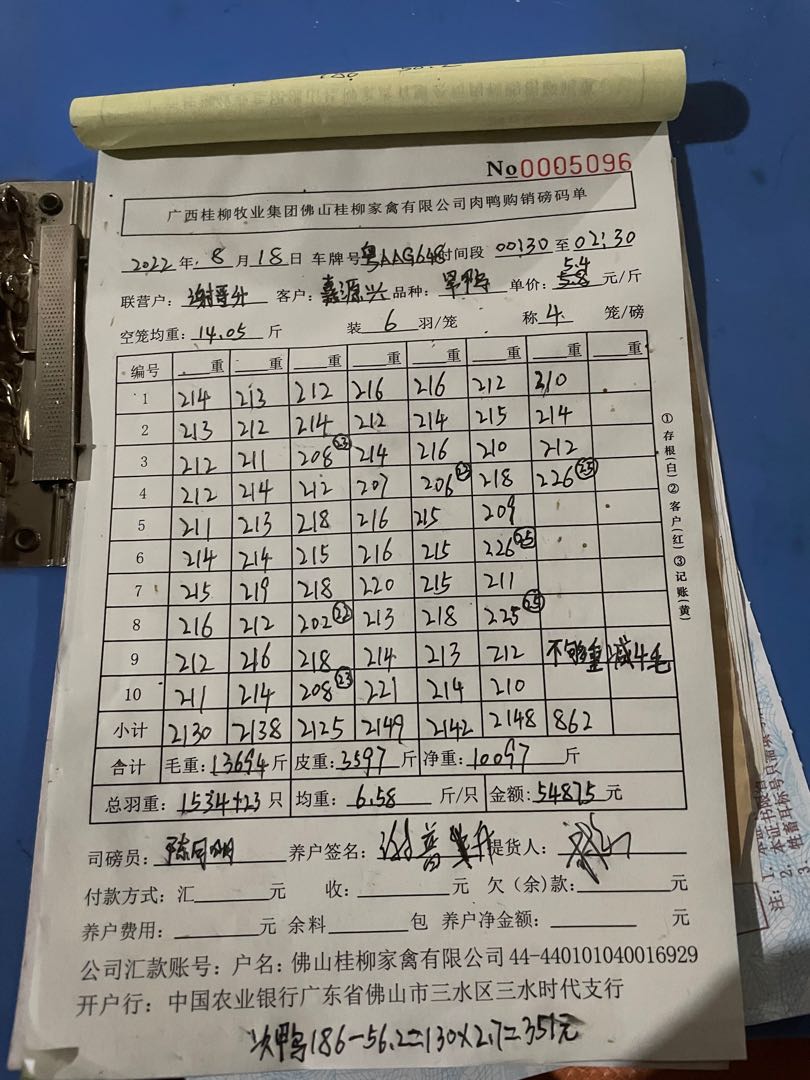 No 0005096
广西桂柳牧业集团佛山桂柳家禽有限公司肉鸭购销磅码单
2022年 8月18日 车牌号 粤AAG648 时间段 00:30 至 02:30
5.4
联营户: 客户: 嘉源兴 品种: 旱鸭 单价: 5.8 元/斤
空笼均重: 14.05 斤 装 6 羽/笼 称 4 笼/磅
编号 重 重 重 重 重 重 重 重
1 214 213 212 216 216 212 210
2 213 212 214 212 214 215 214
3 212 211 208 (23) 214 216 210 212
4 212 214 212 207 206 218 226 (25)
5 211 213 218 216 215 209
6 214 214 215 216 215 226 (25)
7 215 219 218 220 215 211
8 216 212 202 (22) 213 218 225 (25)
9 212 216 218 214 213 212 不够重减4毛
10 211 214 208 (23) 221 214 210
小计 2130 2138 2125 2149 2142 2148 862
合计 毛重: 13694 斤 皮重: 3597 斤 净重: 10097 斤
总羽重: 1534+23 只 均重: 6.58 斤/只 金额: 54875 元
司磅员: 养户签名: 提货人:
付款方式: 汇 元 收: 元 欠(余)款: 元
养户费用: 元 余料 包 养户净金额: 元
公司汇款账号: 户名: 佛山桂柳家禽有限公司 44-440101040016929
开户行: 中国农业银行广东省佛山市三水区三水时代支行
次鸭186-56.2=130×2.7=351元
①存根(白)②客户(红)③记账(黄)
注: 1、
2、
3